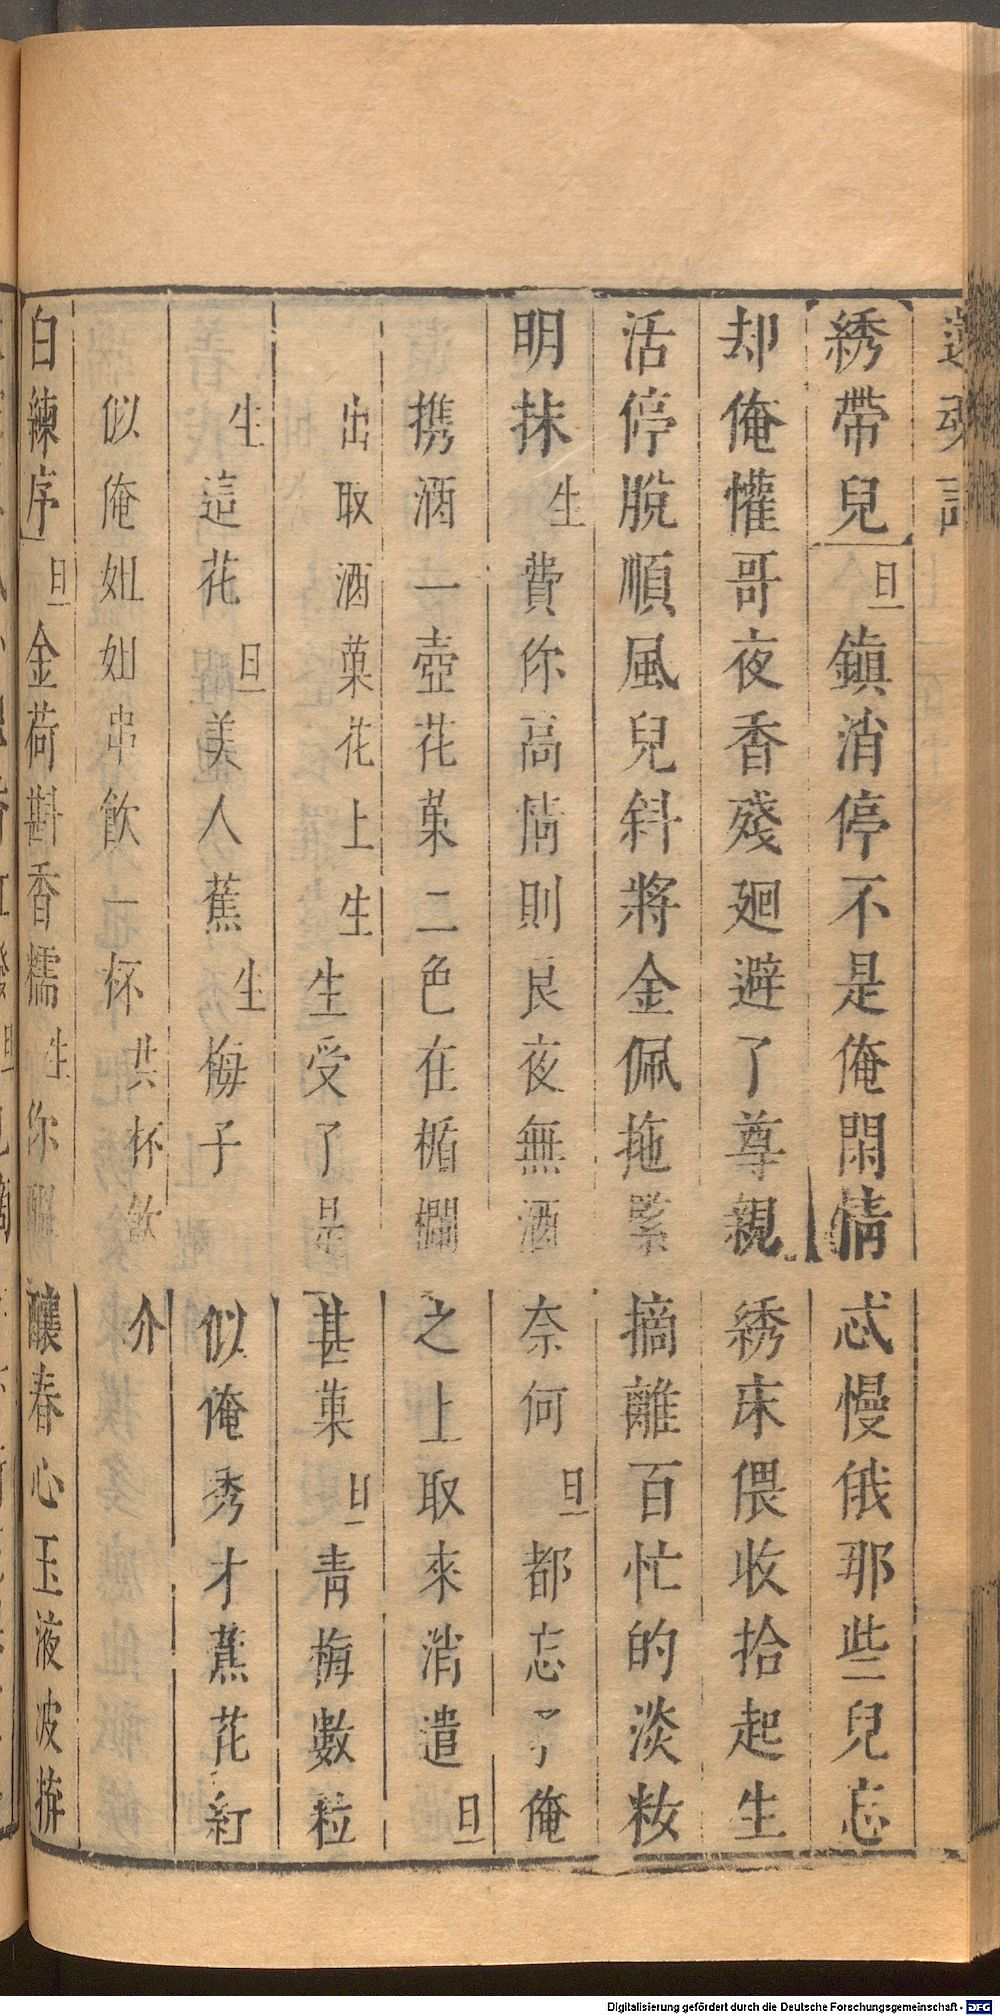 還魂記
綉帶兒旦鎮消停不是俺閑情忒慢俄那些兒忘
却俺懽哥夜香殘廻避了尊親綉床偎收拾起生
活停脫順風兒斜將金佩拖緊摘離百忙的淡粧
明抹生費你高情則良夜無酒奈何旦都忘了俺
携酒一壺花菓二色在楯欄之上取來消遣旦
出取酒菓花上生生受了是甚菓旦青梅數粒
生這花旦美人蕉生梅子似俺秀才蕉花紅
似俺姐姐串飲一杯共杯飲介
白練序旦金荷斟香糯生你醞釀春心玉液波拚
Digitalisierung gefördert durch die Deutsche Forschungsgemeinschaft - DFG